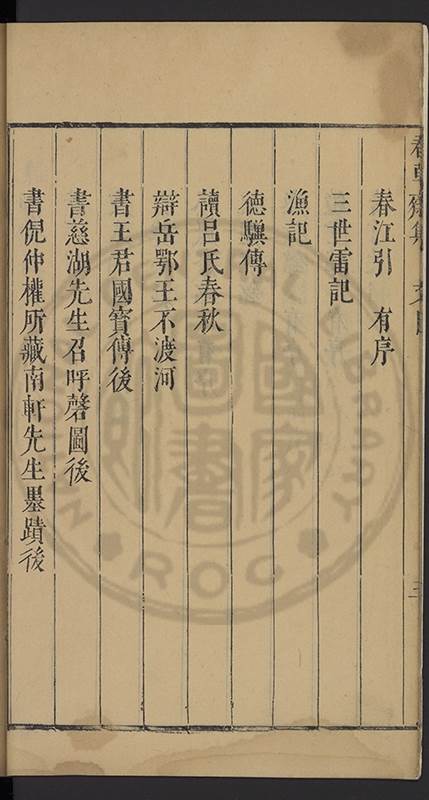 春江引 有序
三世雷記
漁記
德驥傳
讀呂氏春秋
辯岳鄂王不渡河
書王君國寶傳後
書慈湖先生召呼磬圖後
書倪仲權所藏南軒先生墨蹟後